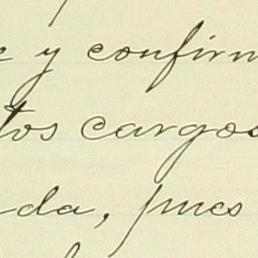 e y confirm
tos cargos
da, pues